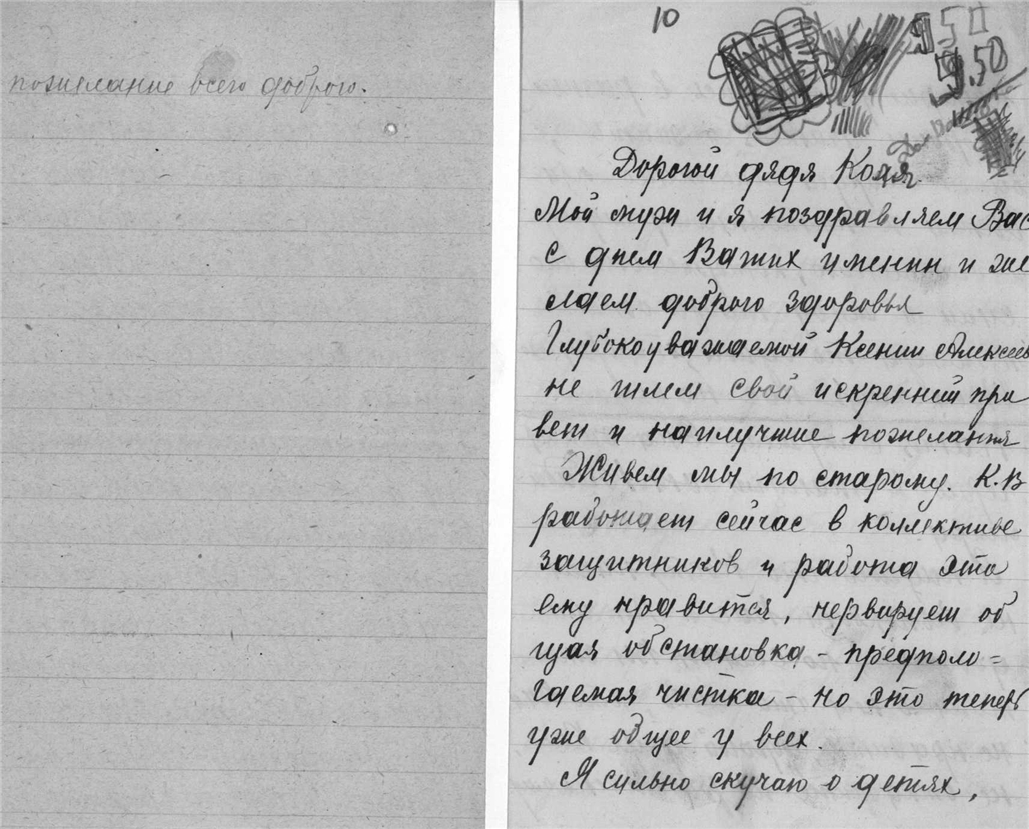 пожелание всего доброго.
10
950
9.50
Дорогой дядя Коля
Мой муж и я поздравляем Вас
с днем Ваших именин и же
лаем доброго здоровья
Глубокоуважаемой Ксении Алексеев
не шлем свой искренний при
вет и наилучшие пожелания
Живем мы по старому. К.В
работает сейчас в коллективе
защитников и работа эта
ему нравится, нервирует об
щая обстановка – предполо=
гаемая чистка – но это теперь
уже общее у всех.
Я сильно скучаю о детях,